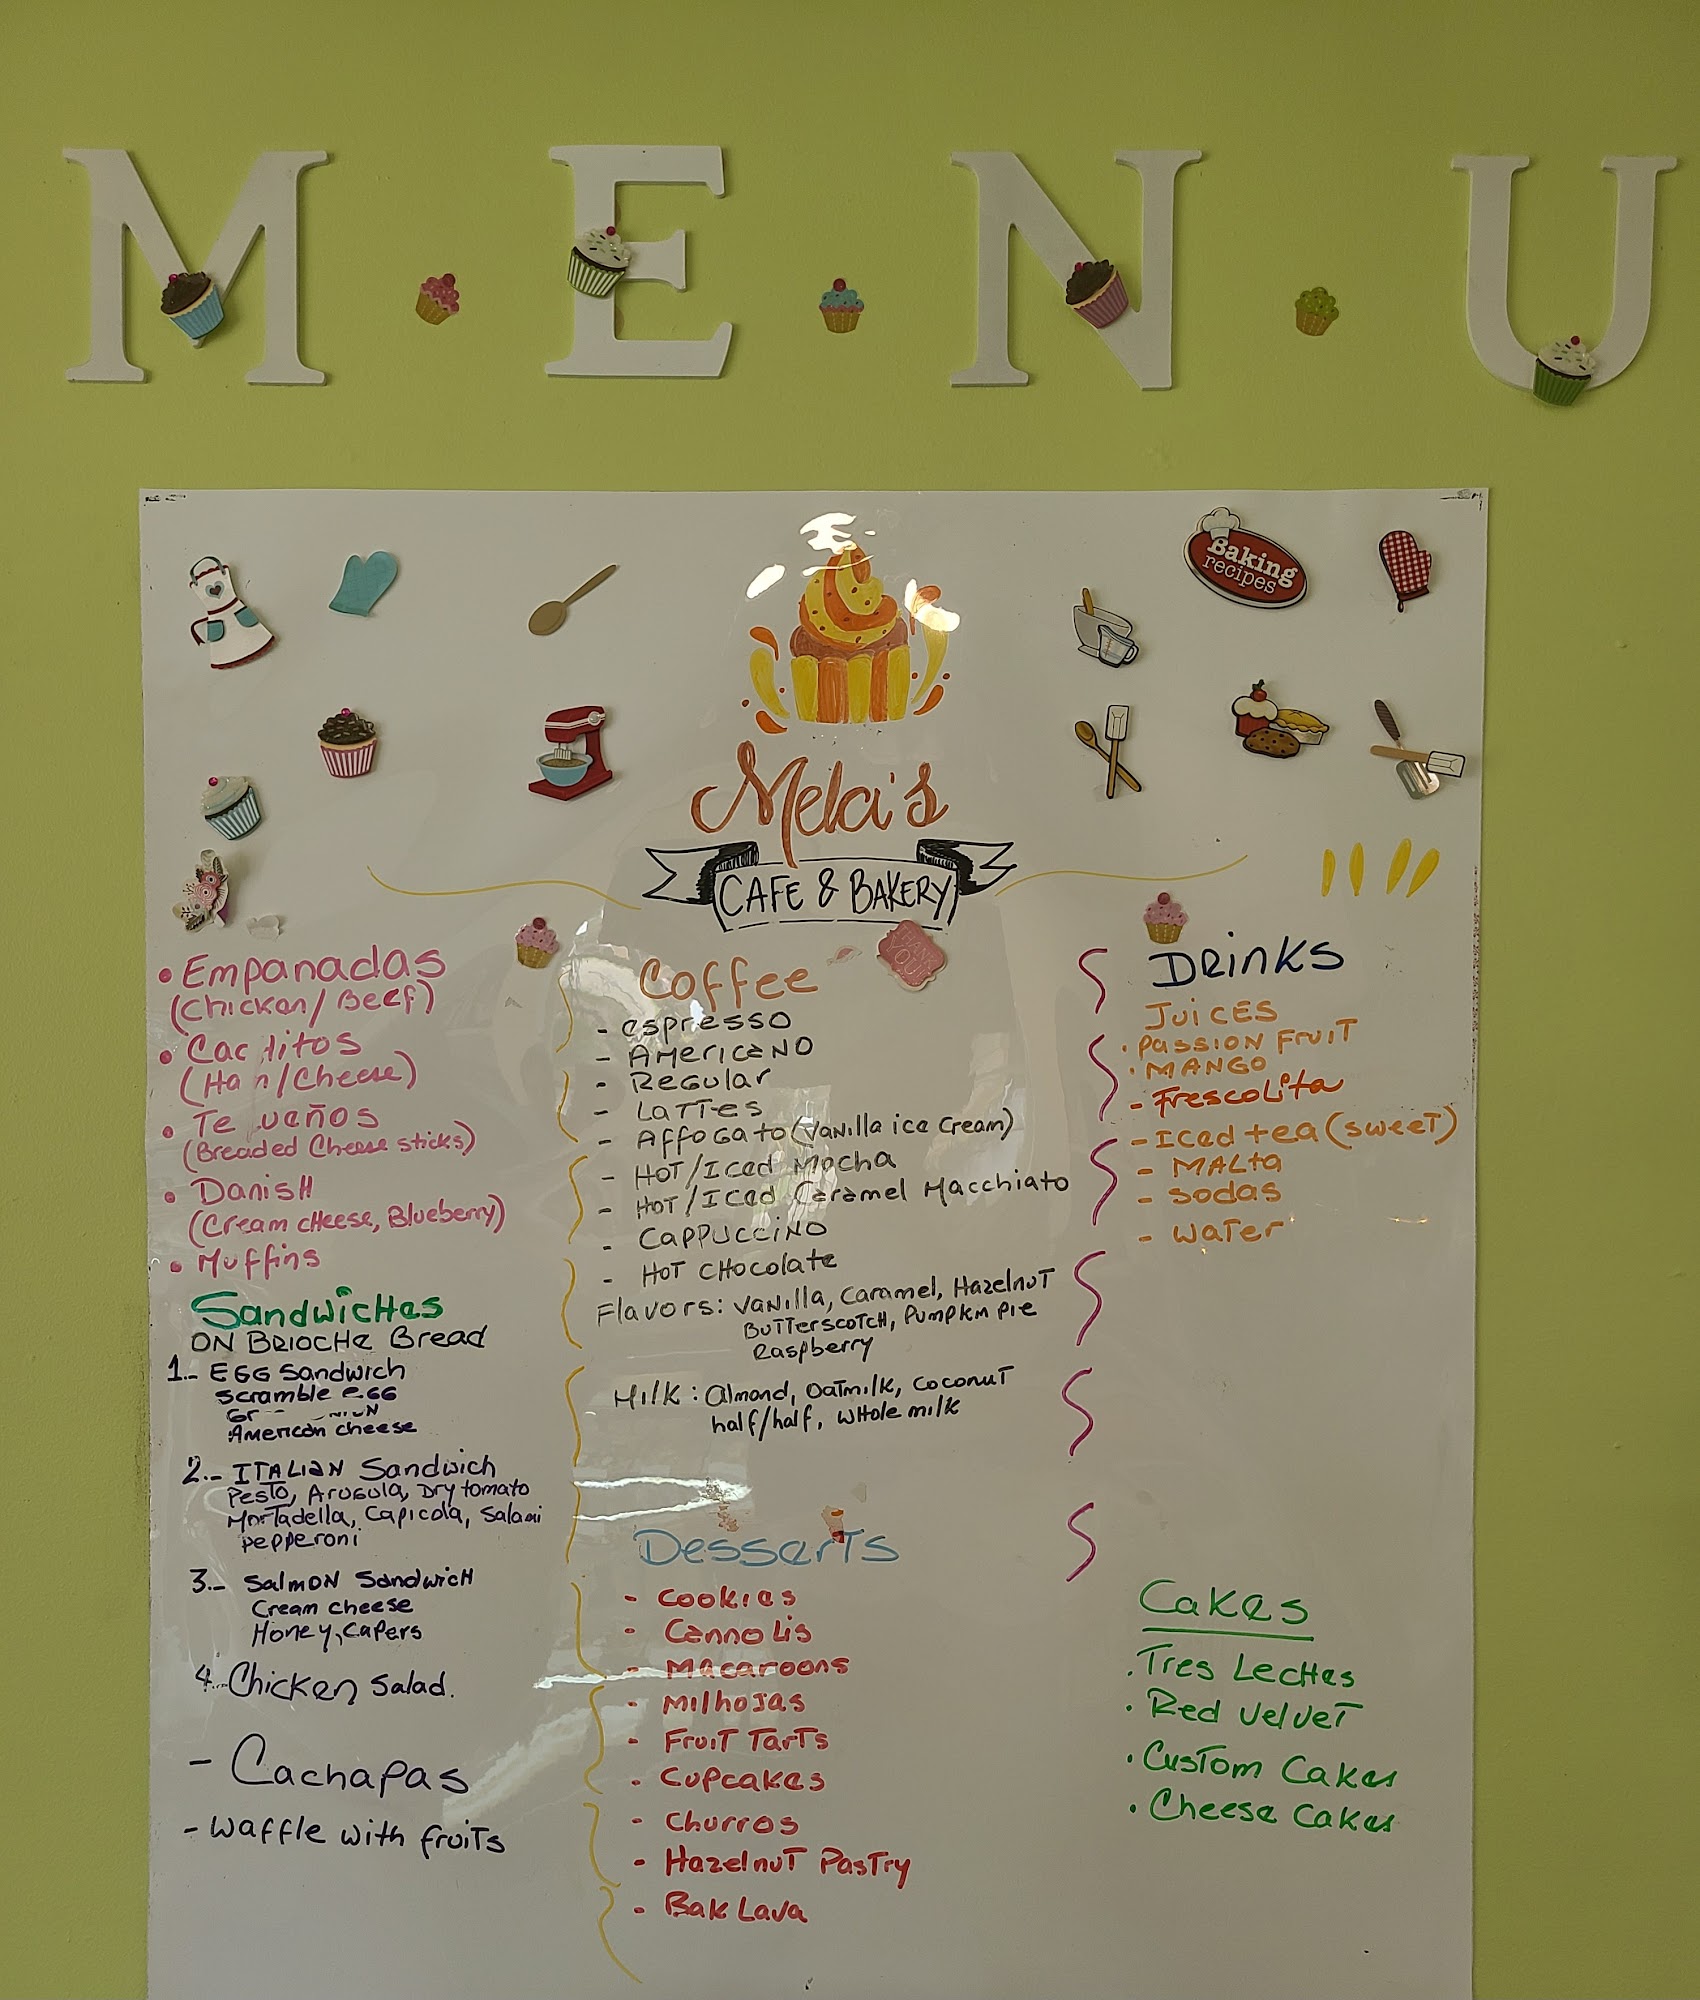 MENU
Baking
recipes
Mela's
CAFE & BAKERY
THANK
YOU!
• Empanadas
(Chicken/Beef)
(Ham/Cheese)
(Breaded Cheese sticks)
• Danish
(Cream cheese, Blueberry)
• Muffins
Sandwiches
ON BRIOCHE Bread
1.- EGG Sandwich
Scramble EGG
American cheese
2.- ITALIAN Sandwich
Pesto, Arugula, Dry tomato
Mortadella, Capicola, Salami
pepperoni
3.- Salmon Sandwich
Cream cheese
Honey, Capers
4.- Chicken Salad.
- Cachapas
- Waffle with fruits
Coffee
- espresso
- Americano
- Regular
- Lattes
- Affogato (Vanilla ice Cream)
- Hot/Iced Mocha
- Hot/Iced Caramel Macchiato
- Cappuccino
- Hot Chocolate
Flavors: Vanilla, Caramel, Hazelnut
Butterscotch, Pumpkin pie
Raspberry
Milk: almond, oatmilk, coconut
half/half, whole milk
Desserts
- Cookies
- Cannolis
- Macaroons
- Milhojas
- Fruit Tarts
- Cupcakes
- Churros
- Hazelnut Pastry
- Baklava
Drinks
Juices
• Passion Fruit
• Mango
- Frescolita
- Iced tea (sweet)
- Malta
- Sodas
- Water
Cakes
• Tres Leches
• Red Velvet
• Custom Cakes
• Cheese Cakes